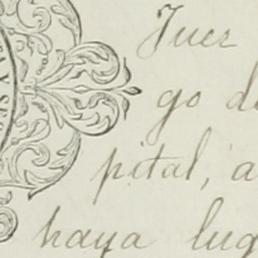 Juer
go d
pital, a
haya lug